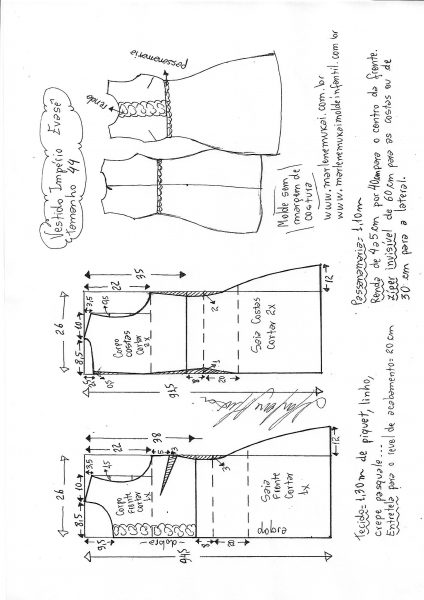 Vestido Império Evasê
Tamanho 44
renda
passamanaria
Molde sem
margem de
costura
www.marlenemukai.com.br
www.marlenemukaimoldeinfantil.com.br
Passamanaria= 1,10m
Renda de 4a5cm por 40cm para o centro da frente.
Zíper invisível de 60cm para as costas ou de
30cm para a lateral.
26
8,5
10
3,5
22
35
1,5
Corpo
costas
cortar
2x
Saia Costas
cortar 2x
2
8
20
12
26
8,5
10
3,5
22
38
1,5
9,5
5
3
Corpo
frente
cortar
1x
Saia
Frente
Cortar
1x
dobra
dobra
3
8
20
12
Tecido= 1,30m de piquet, linho,
crepe pasquale...
Entretela para o level de acabamento= 20cm